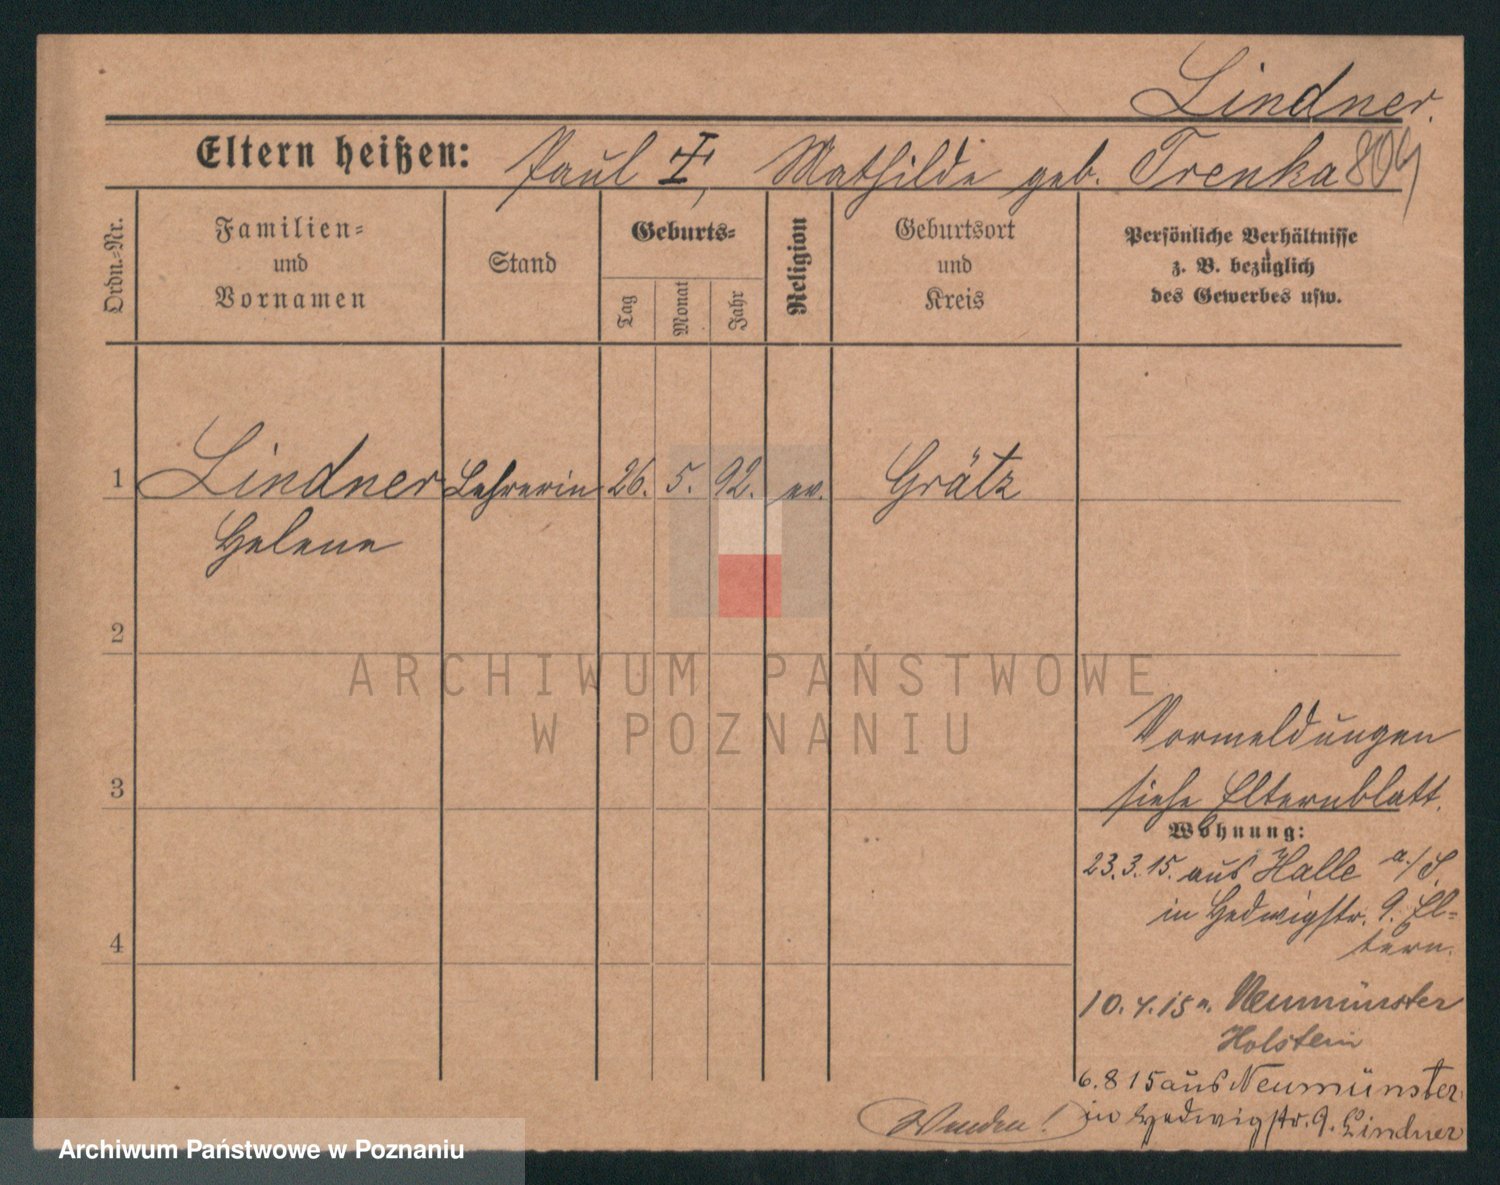 Lindner.
Eltern heißen: Paul †, Mathilde geb. Trenka 809
Ordn.-Nr.
Familien-
und
Vornamen
Stand
Geburts-
Tag
Monat
Jahr
Religion
Geburtsort
und
Kreis
Persönliche Verhältnisse
z. B. bezüglich
des Gewerbes usw.
1 Lindner Lehrerin 26. 5. 92. ev. Grätz
Helene
2
ARCHIWUM PAŃSTWOWE
W POZNANIU
Vormeldungen
3 siehe Elternblatt.
Wohnung:
23.3.15. aus Halle a./S.
in Hedwigstr. 9. El-
4 tern.
10.4.15 n. Neumünster
Holstein
6.8 15 aus Neumünster
in Hedwigstr. 9. Lindner
Wenden!
Archiwum Państwowe w Poznaniu